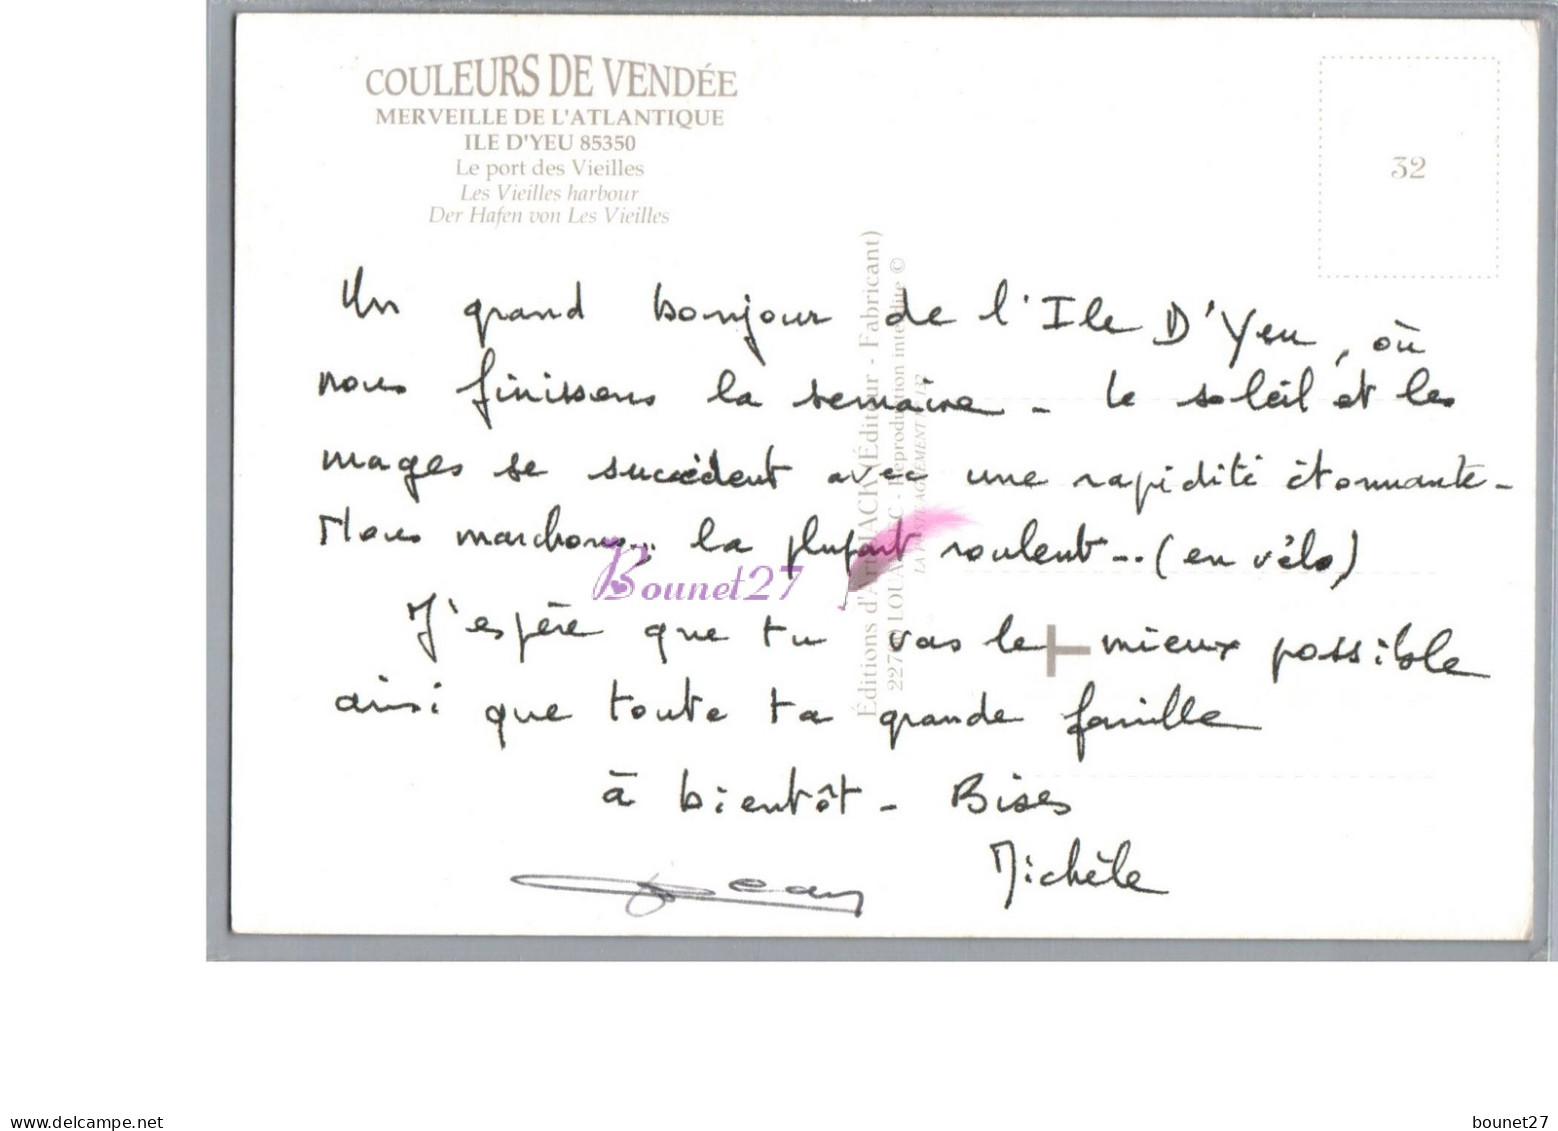 COULEURS DE VENDÉE
MERVEILLE DE L'ATLANTIQUE
ILE D'YEU 85350
Le port des Vieilles
Les Vieilles harbour
Der Hafen von Les Vieilles
32
Un grand bonjour de l'Ile D'Yeu, où
nous finissons la semaine - Le soleil et les
nuages se succèdent avec une rapidité étonnante -
Nous marchons... la plupart roulent... (en vélo)
J'espère que tu vas le mieux possible
ainsi que toute ta grande famille
à bientôt - Bises
Michèle
Jean
Éditions d'Art JACK (Éditeur - Fabricant)
LOUANNEC - Reproduction interdite ©
Bounet27
www.delcampe.net
bounet27